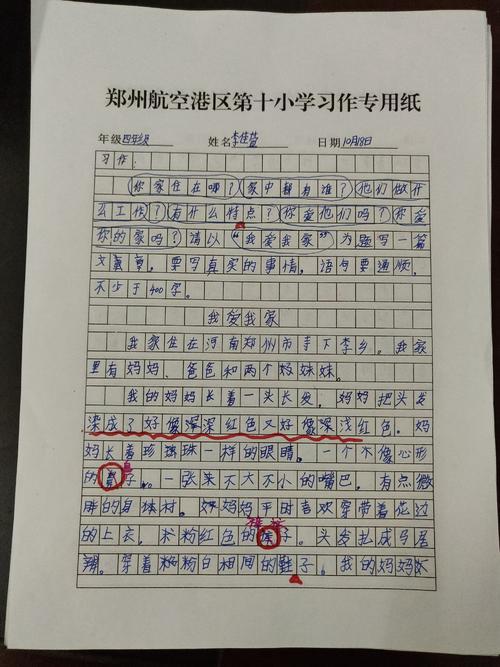 郑州航空港区第十小学习作专用纸
年级四年级 姓名李佳萱 日期10月18日
习作:
你家住在哪?家中都有谁?他们做什
么工作?有什么特点?你爱他们吗?你爱
你的家吗?请以“我爱我家”为题写一篇
文章,要写真实的事情,语句要通顺,
不少于400字。
我爱我家
我家住在河南郑州市李乡。我家
里有妈妈、爸爸和两个妹妹。
我的妈妈长着一头长发,妈妈把头发
染成了好像深红色又好像深浅红色。妈
妈长着珍珠一样的眼睛。一个不像心形
的鼻子。一张不大不小的嘴巴。有点微
胖的身材。妈妈平时喜欢穿带着花边
的上衣,粉红色的裤子。头发扎成马尾
辫。穿着粉白相间的鞋子。我的妈妈